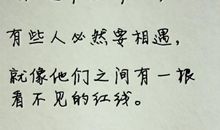 有些人必然要相遇，
就像他们之间有一根
看不见的红线。